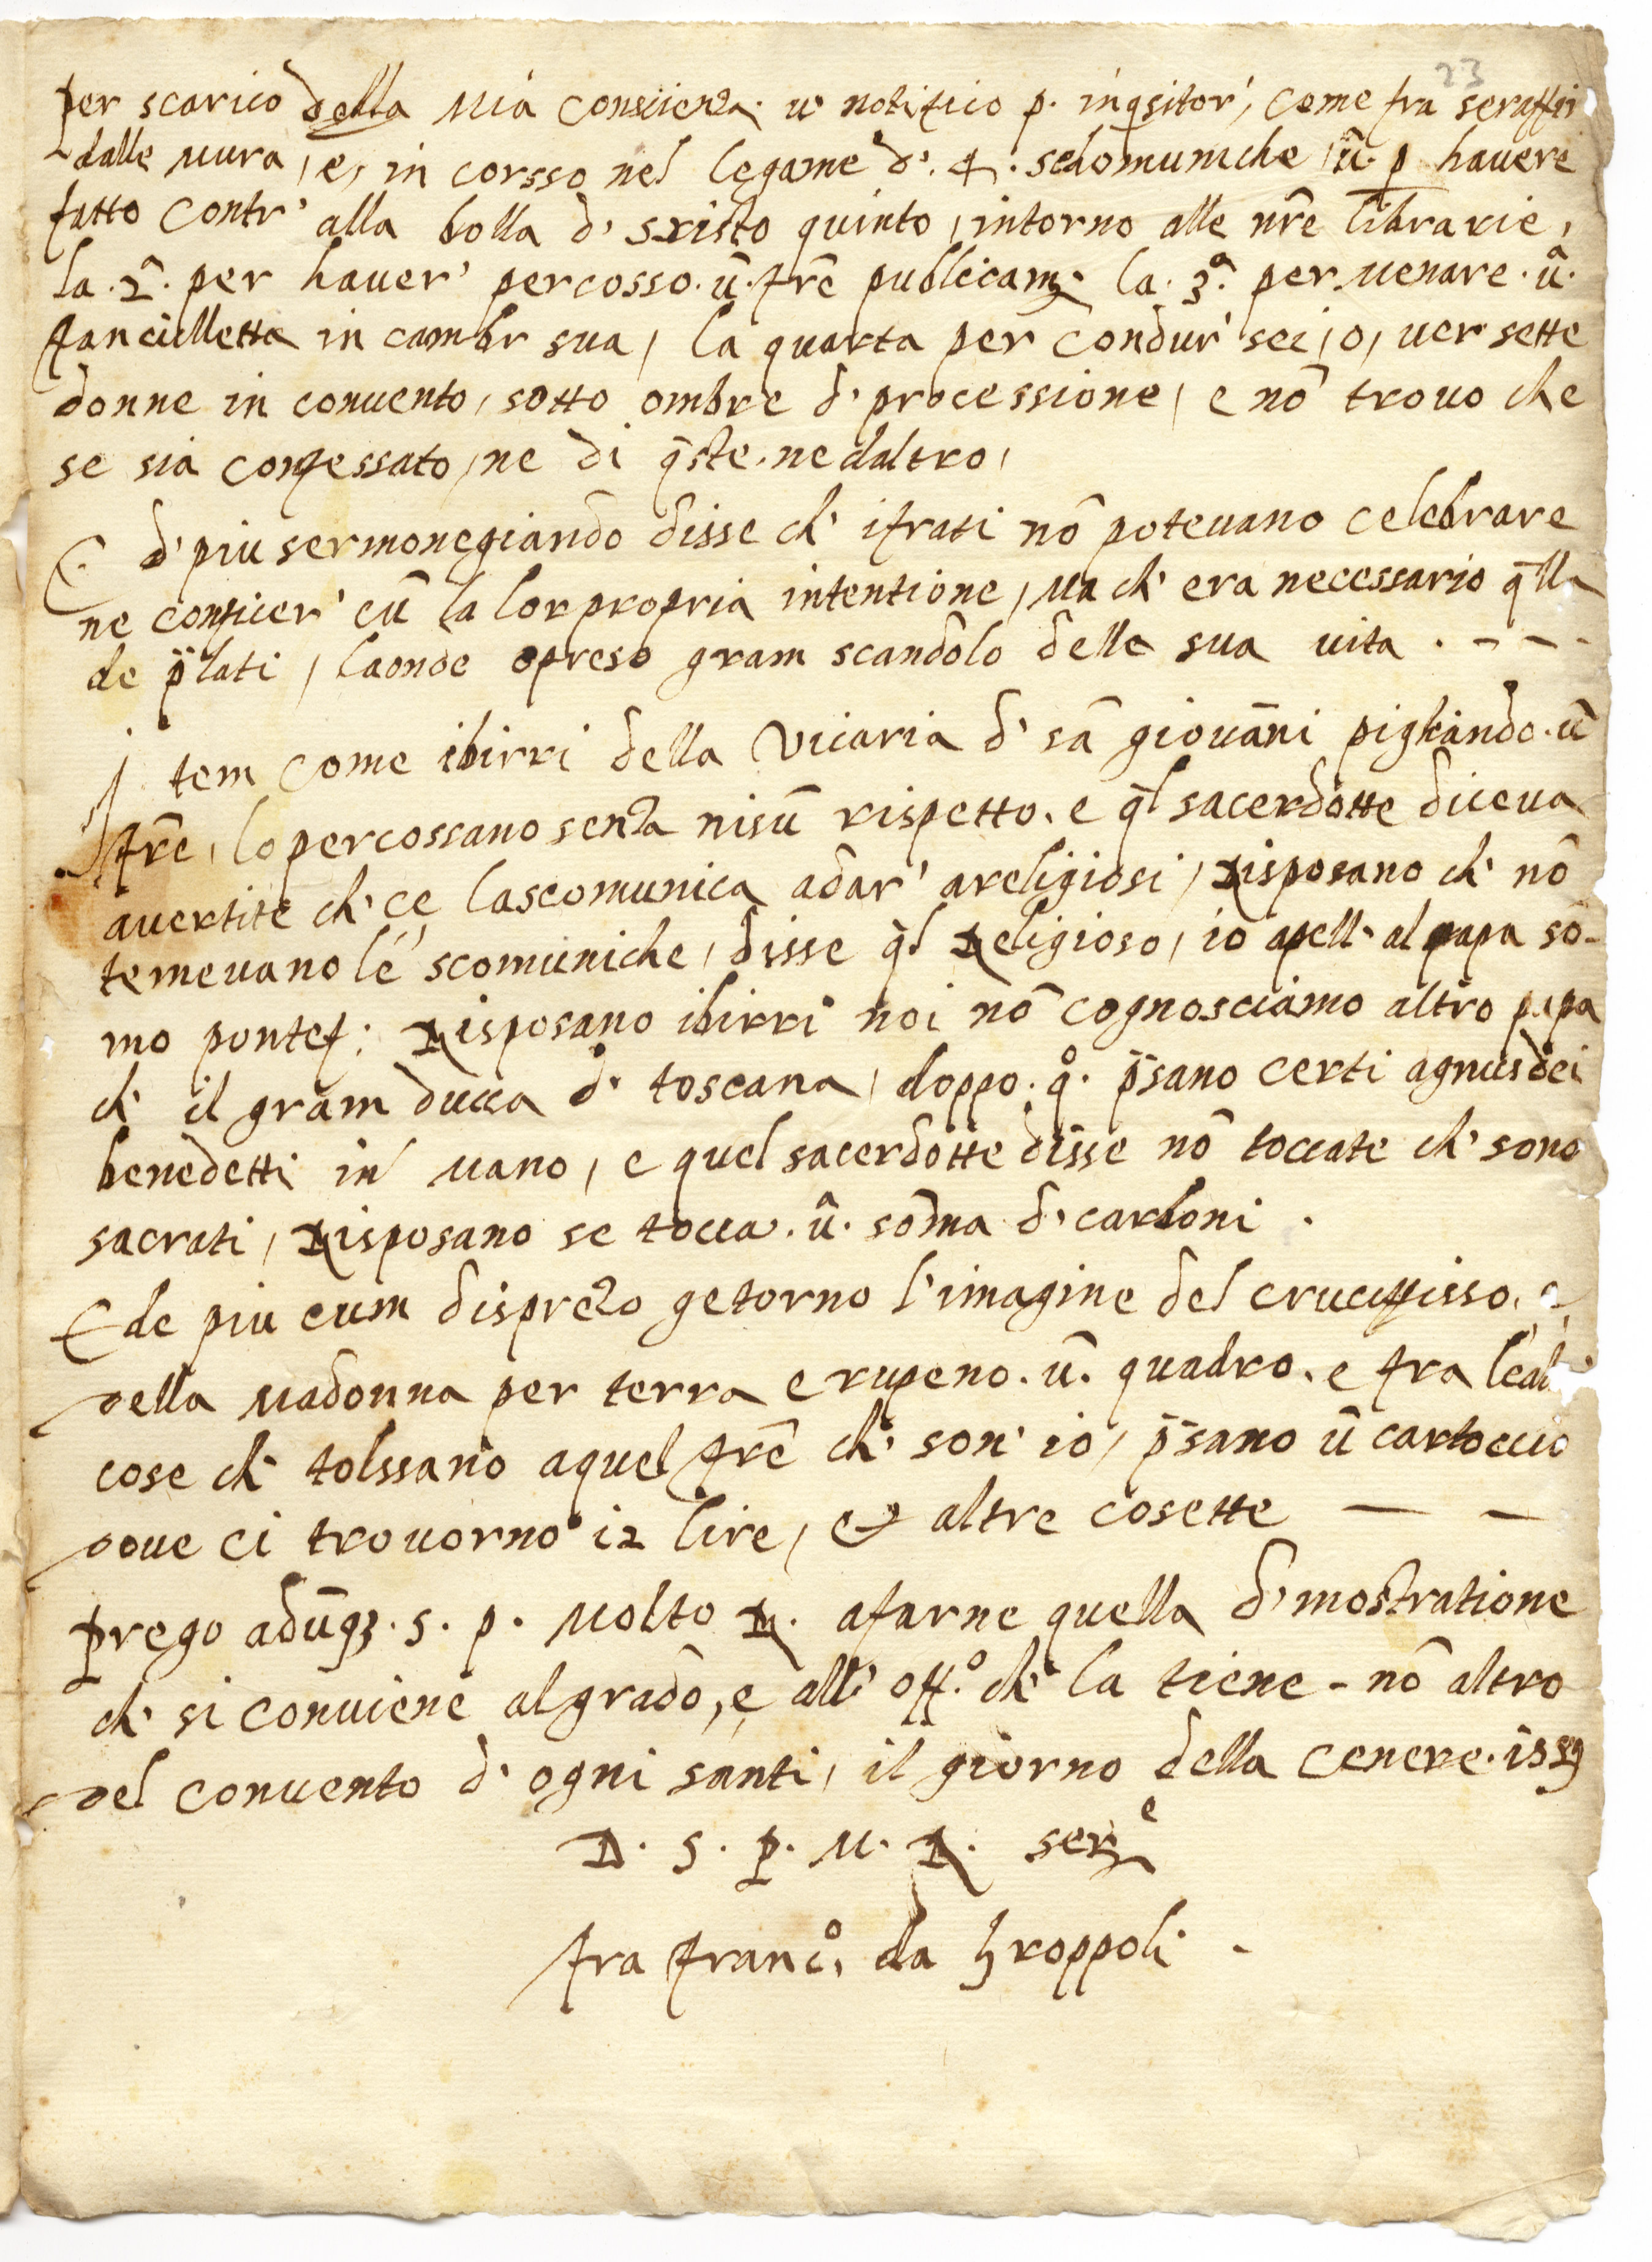 23
per scarico della mia consciienza. u' notifico p. inqsitor', come fra seraffi
dalle mura, e, in corsso nel legame d'. 4. schomuniche, ū. p havere
fatto contr' alla bolla d' sxisto quinto, intorno alle nr̄e librarie,
la. 2ª. per haver' percosso. ū. fr̄e publicam̄. la. 3ª. per menare. ū.
fanciulletta in cambr sua, la quarta per condur' sei, o, ver sette
donne in convento, sotto ombre d' processione, e nō trovo che
se sia confessato, ne di q̄ste. ne daltro,
E d' piu sermonegiando disse ch' ifrati nō potevano celebrare
ne conficer' cū la lor propria intentione, ma ch' era necessario q̄lla
de p̄lati, laonde opreso gram scandolo della sua vita. - - -
Item come ibirri della Vicaria d' sā giovāni pigliando. ū
fr̄e, lo percossano senza nisū rispetto. e q̄l sacerdotte diceva
avertite ch' ce lascomunica adar' areligiosi, Risposano ch' nō
temevano le scomuniche, disse q̄l Religioso, io apell' al papa sō-
mo pontef: Risposano ibirri noi nō cognosciamo altro papa
ch' il gram ducca d' toscana, doppo. qº. p̄sano certi agnusdei
benedetti in mano, e quel sacerdotte disse nō toccate ch' sono
sacrati, Risposano se tocca. ū. sōma d' carboni.
E de piu cum disprezo getorno l'imagine del cruciffisso, e
della madonna per terra e rupeno. ū. quadro. e fra leal
cose ch' tolssano aquel fr̄e ch' son' io, p̄sano ū cartoccio
dove ci trovorno 12 lire, et altre cosette — —
prego adūq3. s. p. molto R. afarne quella d'mostratione
ch' si conviene algrado, e all' offº. ch' la tiene - nō altro
del convento d' ogni santi, il giorno della cenere. 1589
D. S. P. M. R. serᵉ
fra francº, da groppoli -